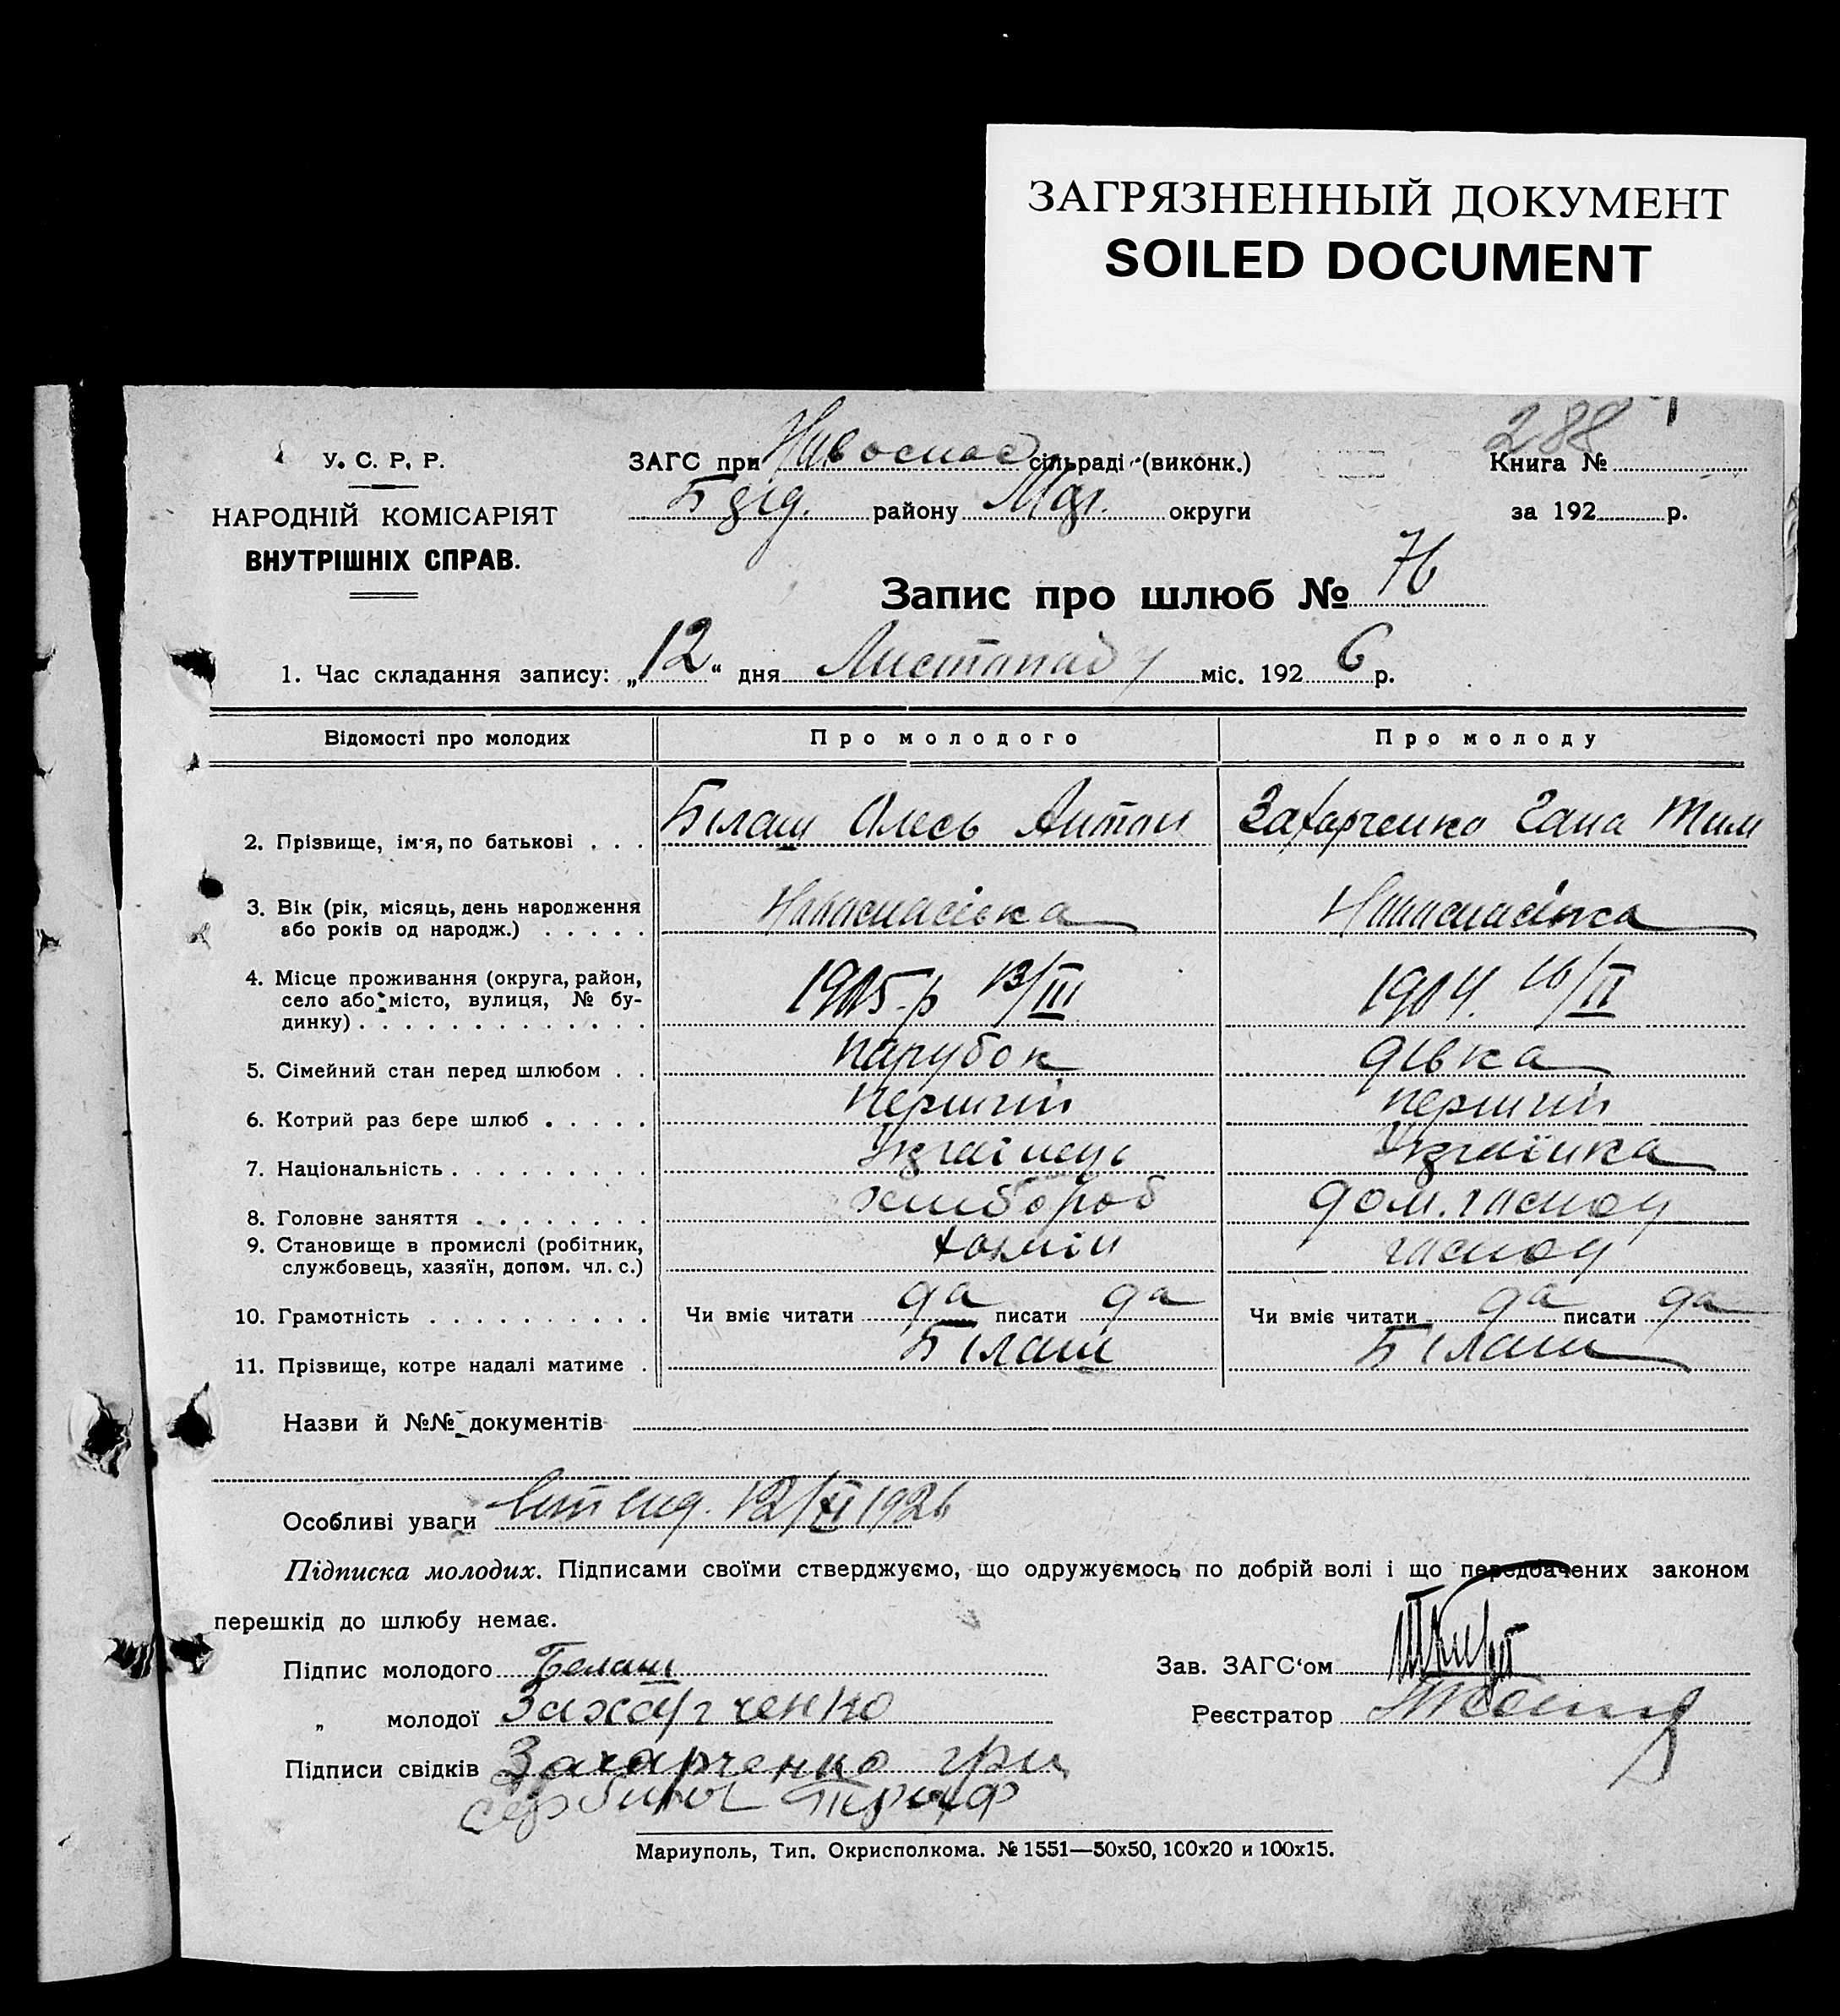 ЗАГРЯЗНЕННЫЙ ДОКУМЕНТ
SOILED DOCUMENT
288
У. С. Р. Р.
НАРОДНІЙ КОМІСАРІЯТ
ВНУТРІШНІХ СПРАВ.
ЗАГС при Новоспас сільраді (виконк.)
району Мар. округи
Книга №
за 192 р.
Запис про шлюб № 76
1. Час складання запису: „12“ дня Листопаду міс. 1926 р.
Відомості про молодих Про молодого Про молоду
2. Прізвище, ім'я, по батькові . . . Білаш Олесь Антон Захарченко Гана Тим
3. Вік (рік, місяць, день народження
або років од народж.) . . . . . Новоспасівка Новоспасівка
4. Місце проживання (округа, район,
село або місто, вулиця, № бу-
динку) . . . . . . . . . . . . . 1905 р 13/III 1904. 16/II
5. Сімейний стан перед шлюбом . . парубок дівка
6. Котрий раз бере шлюб . . . . . перший перший
7. Національність . . . . . . . . . Украінець Украінка
8. Головне заняття . . . . . . . . хлібороб дом. господ
9. Становище в промислі (робітник,
службовець, хазяїн, допом. чл. с.) господ
10. Грамотність . . . . . . . . . . Чи вміє читати да писати да Чи вміє читати да писати да
11. Прізвище, котре надалі матиме . Білаш Білаш
Назви й №№ документів
Особливі уваги 12/XI 1926
Підписка молодих. Підписами своїми стверджуємо, що одружуємось по добрій волі і що передбачених законом
перешкід до шлюбу немає.
Підпис молодого Белаш
Зав. ЗАГС'ом
„ молодої Захарченко
Реєстратор
Підписи свідків Захарченко гри
Мариуполь, Тип. Окрисполкома. № 1551—50х50, 100х20 и 100х15.